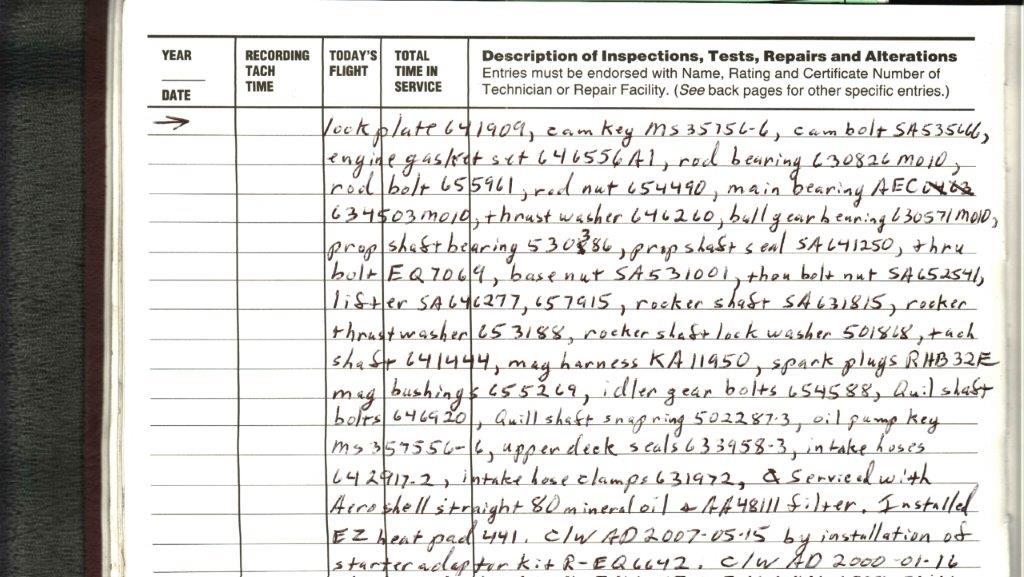 YEAR
DATE
RECORDING TACH TIME
TODAY'S FLIGHT
TOTAL TIME IN SERVICE
Description of Inspections, Tests, Repairs and Alterations
Entries must be endorsed with Name, Rating and Certificate Number of
Technician or Repair Facility. (See back pages for other specific entries.)
→ lock plate 641909, cam key MS35756-6, cam bolt SA535666,
engine gasket set 646556A1, rod bearing 630826M010,
rod bolt 655961, rod nut 654490, main bearing AEC
634503M010, thrust washer 646260, ball gear bearing 630571M010,
prop shaft bearing 530386, prop shaft seal SA641250, thru
bolt EQ7069, base nut SA531001, thou bolt nut SA652541,
lifter SA646277, 657915, rocker shaft SA631815, rocker
thrust washer 653188, rocker shaft lock washer 501868, tach
shaft 641444, mag harness KA11950, spark plugs RHB32E
mag bushings 655269, idler gear bolts 654588, Quil shaft
bolts 646920, Quill shaft snap ring 502287-3, oil pump key
MS357556-6, upper deck seals 633958-3, intake hoses
642917-2, intake hose clamps 631972, & Serviced with
Aeroshell straight 80 mineral oil & AA48111 filter. Installed
EZ heat pad 441. C/W AD 2007-05-15 by installation of
starter adaptor kit R-EQ6642. C/W AD 2000-01-16